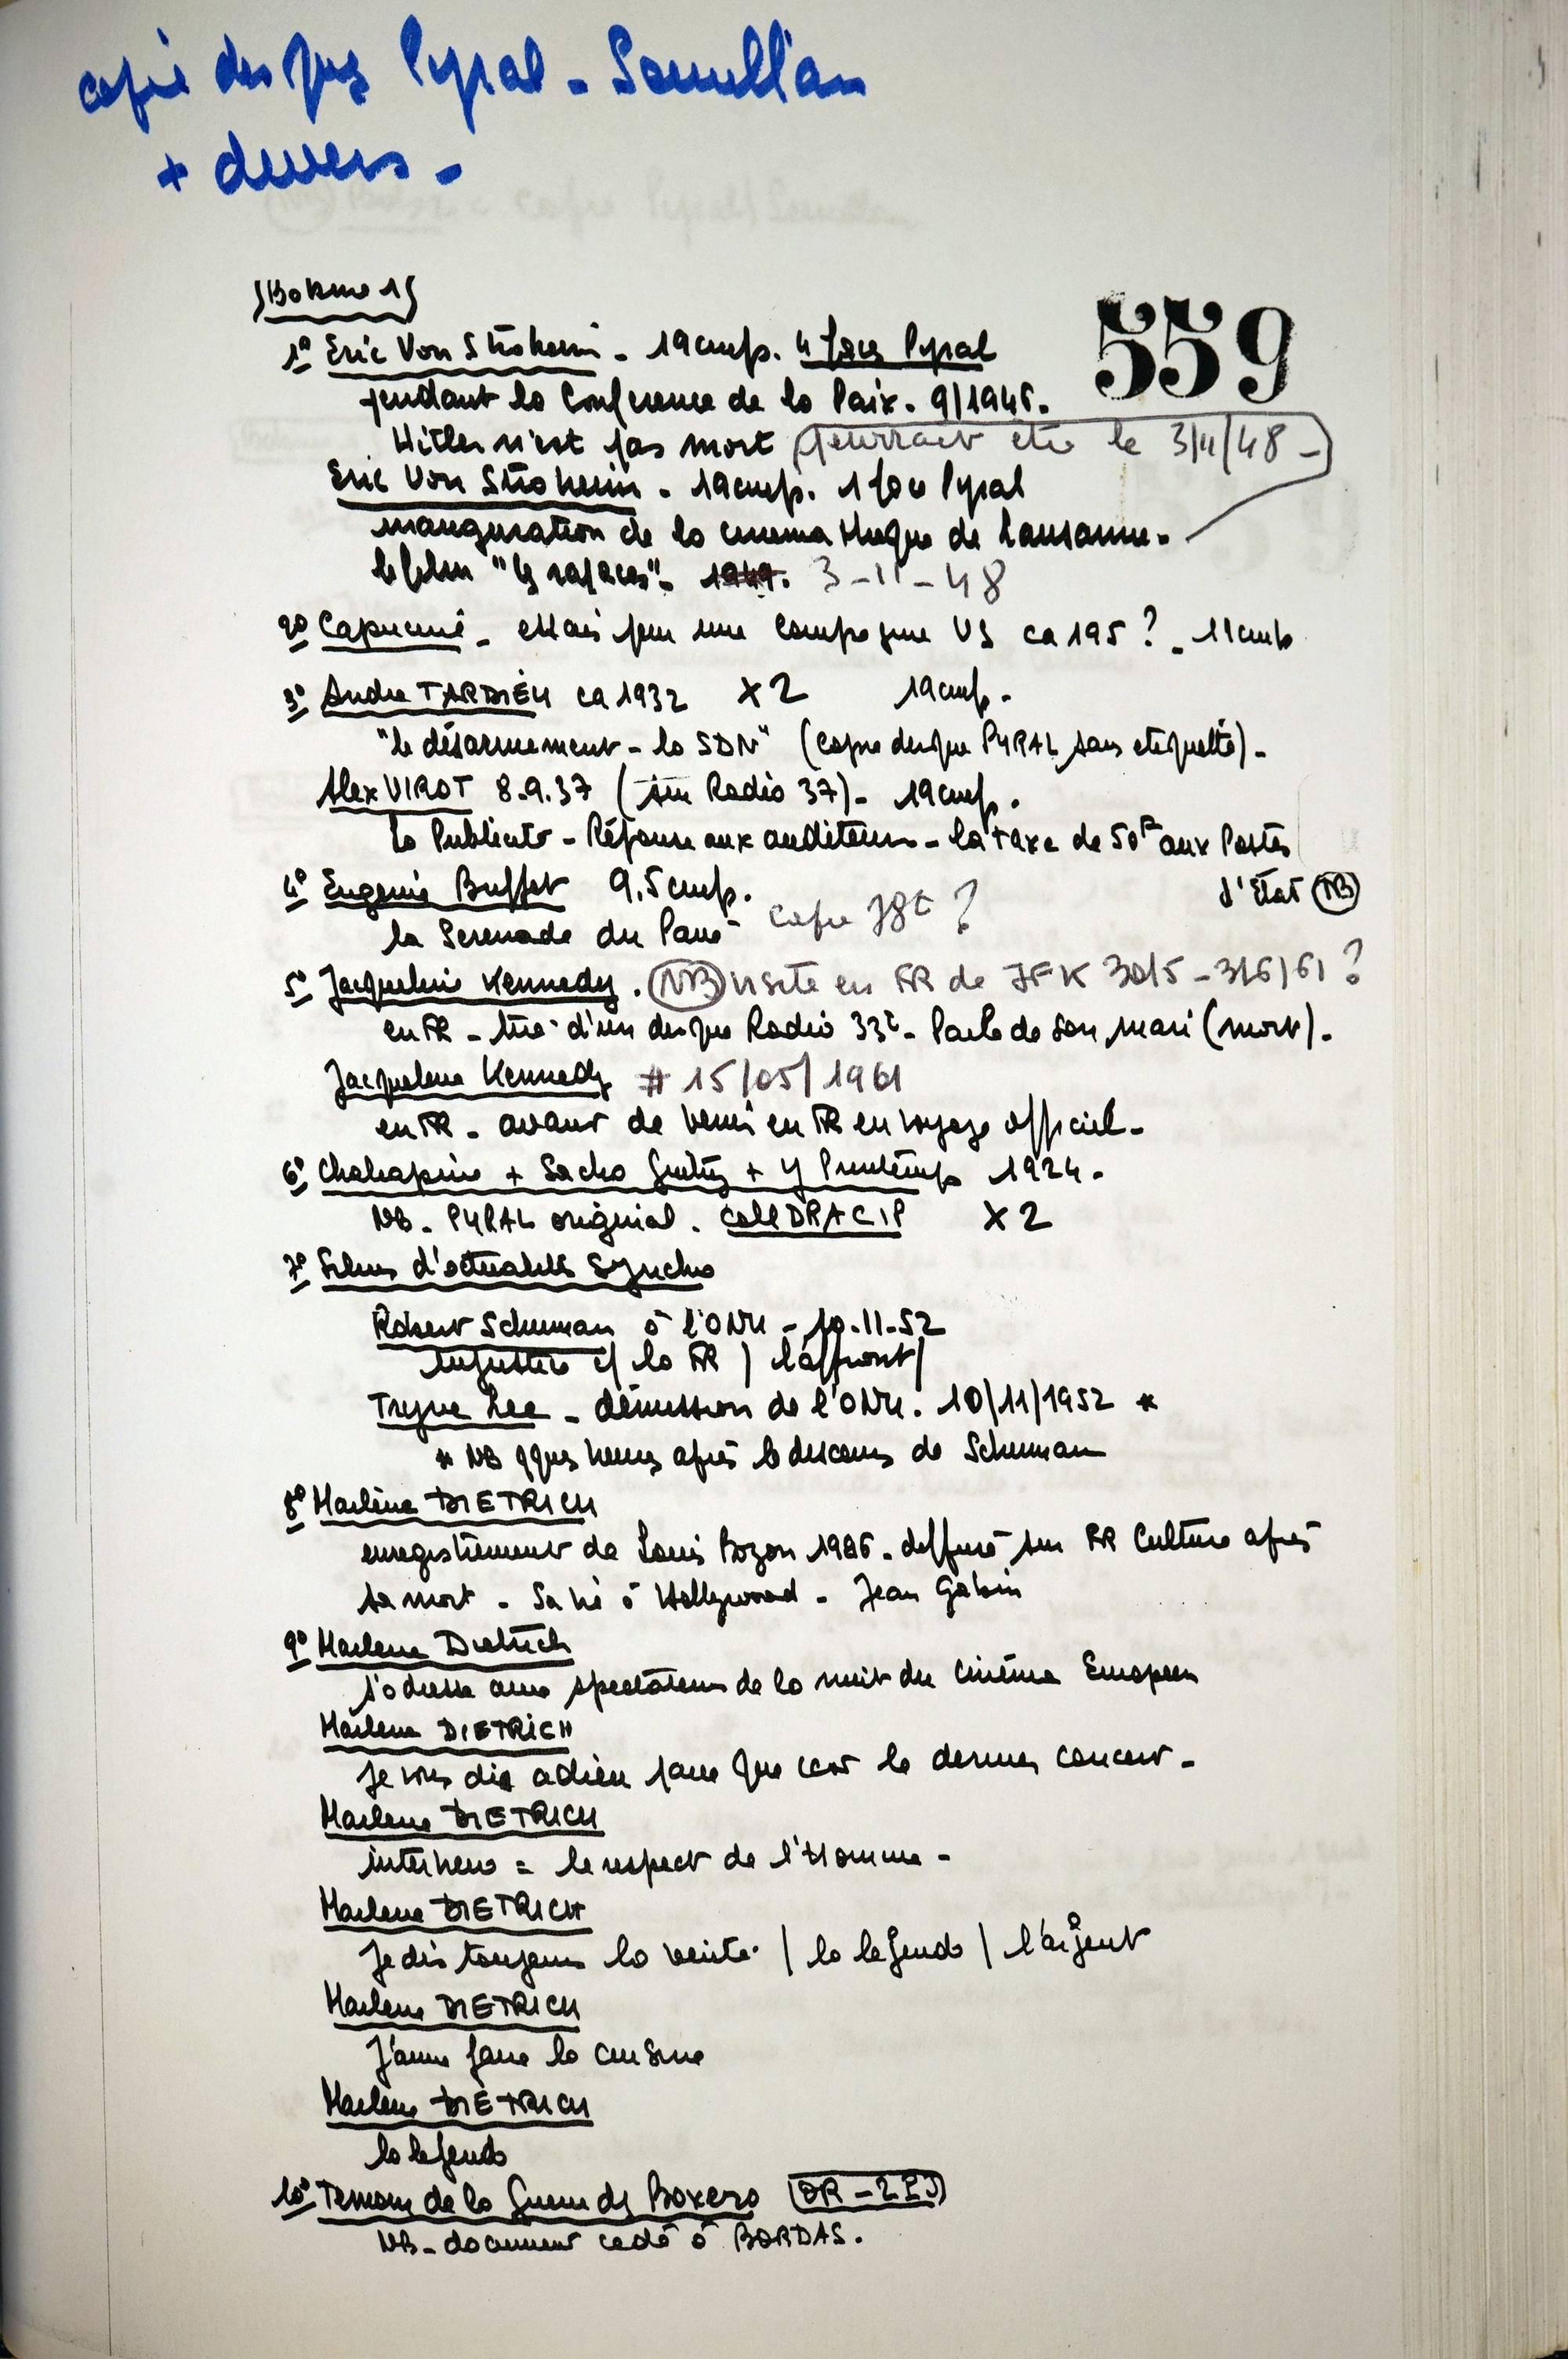 copie disques Pyral - Soullan
+ divers -
Bobine 1
559
1° Eric Von Stroheim - 19cmps. 4 faces Pyral
pendant la Conference de la Paix. 9/1946.
Hitler n'est pas mort (pourrait etre le 3/11/48 -)
Eric Von Stroheim - 19cmps. 1 face Pyral
inauguration de la cinematheque de Lausanne -
le film "les rapaces" - 1949. 3-11-48
2° Capucine - essais pour une compagnie US ca 195? - 19cmps
3° Andre TARDIEU ca 1932 X2 19cmps -
"le désarmement - la SDN" (copie disque PYRAL sans etiquette) -
Alex VIROT 8.9.37 (sur Radio 37) - 19cmps.
La Publicité - Réponse aux auditeurs - la taxe de 50F aux Postes
d'Etat (NB)
4° Eugenie Buffet 9,5cmps.
la Serenade du Pavé copie 78t ?
5° Jacqueline Kennedy. (NB) visite en FR de JFK 30/5 - 3/6/61 ?
en FR - tiré d'un disque Radio 33t - Parle de son mari (mort) -
Jacqueline Kennedy # 15/05/1961
en FR - avant de venir en FR en voyage officiel -
6° Chaliapine + Sacha Guitry + Y Printemps 1924 -
NB - PYRAL original. Coll DRACIP X2
7° Films d'actualités Synchro
Robert Schuman à l'ONU - 10.11.52
injustice c/ la FR / l'affront /
Trygve Lee - démission de l'ONU. 10/11/1952 *
* NB qques heures après le discours de Schuman
8° Marlène DIETRICH
enregistrement de Louis Bozon 1986 - diffusé sur FR Culture après
sa mort - Sa vie à Hollywood - Jean Gabin
9° Marlene Dietrich
s'adresse aux spectateurs de la nuit du Cinéma Européen
Marlene DIETRICH
Je vous dis adieu parce que c'est le dernier concert -
Marlene DIETRICH
interview = le respect de l'Homme -
Marlene DIETRICH
Je dis toujours la verité / la legende / l'argent
Marlene DIETRICH
J'aime faire la cuisine
Marlene DIETRICH
la legende
10° Temoin de la Guerre des Boxers
NB - document cedé à BORDAS.